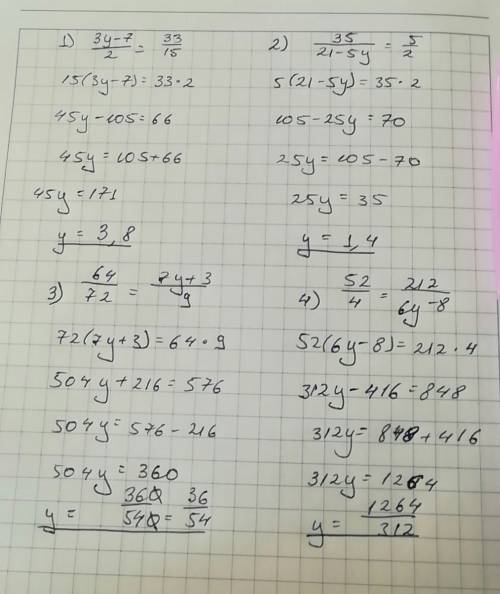 1) (3y-7)/2 = 33/15
15(3y-7)=33·2
45y-105=66
45y=105+66
45y=171
y=3,8
2) 35/(21-5y) = 5/2
5(21-5y)=35·2
105-25y=70
25y=105-70
25y=35
y=1,4
3) 64/72 = (7y+3)/9
72(7y+3)=64·9
504y+216=576
504y=576-216
504y=360
y= 360/540 = 36/54
4) 52/4 = 212/(6y-8)
52(6y-8)=212·4
312y-416=848
312y=848+416
312y=1264
y= 1264/312